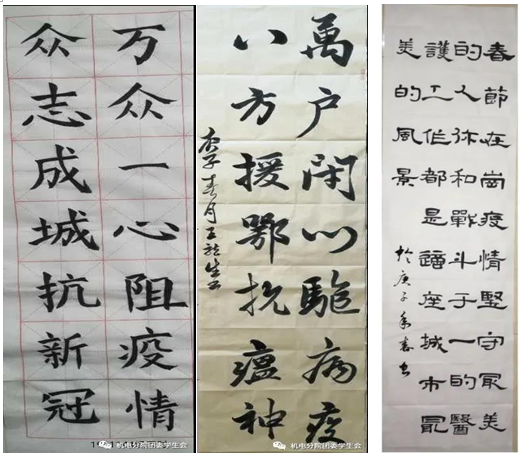 万众一心阻疫情
众志成城抗新冠
机电分院团委学生会
萬户闭门駈病疫
八方援鄂抗瘟神
庚子春月
机电分院团委学生会
春節在崗疫情堅守最美
的人你和戰斗于一的醫
護工作都是這座城市最
美的風景
於庚子年春書